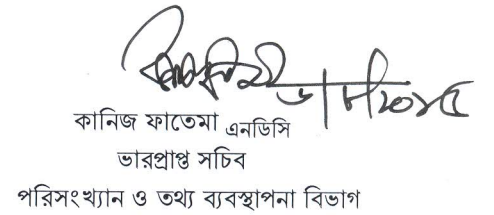 ৬/৮/২০১৫
কানিজ ফাতেমা এনডিসি
ভারপ্রাপ্ত সচিব
পরিসংখ্যান ও তথ্য ব্যবস্থাপনা বিভাগ